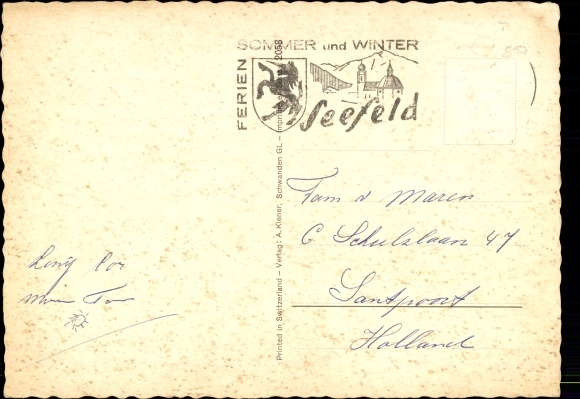 FERIEN
SOMMER und WINTER
Seefeld
Printed in Switzerland – Verlag: A. Kiener, Schwanden GL – 2058
Fam v Maren
C Schulzlaan 47
Santpoort
Holland